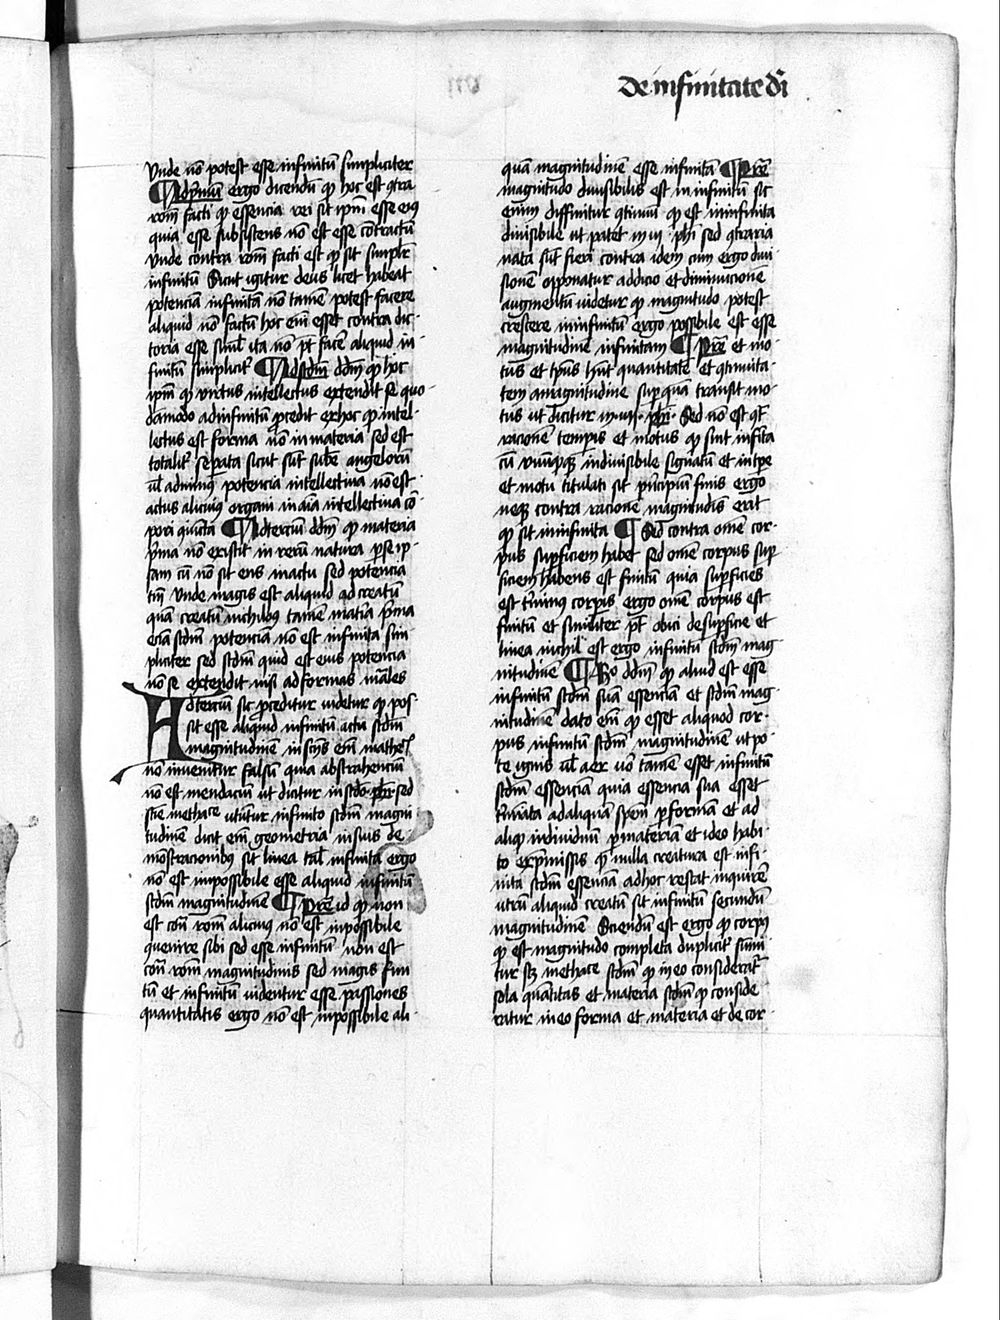 De infinitate dī
vnde nō potest esse infinitū simpliciter
¶ Ad pͥmū ergo dicendū ꝙ hoc est ɔtra
rōnē facti ꝙ essencia rei sit ipm̄ esse eiꝰ
quia esse subsistens nō est esse creatū
vnde contra rōnē facti est ꝙ sit simplr̄
infinitū Sicut igitur deus licet habeat
potenciā infinitā nō tamē potest facere
aliquid nō factū hoc em̄ esset contra dic-
toria esse siml̄ ita nō pt̄ facē aliquid in-
finitū simplicitˀ ¶ Ad scdm̄ ddm̄ ꝙ hoc
ipm̄ ꝙ virtus intellectus extendit se quo-
dāmodo ad infinitū ꝓcedit ex hoc ꝙ intel-
lectus est forma nō in materia sed est
totalitˀ seꝑata sicut sūt sube angelorū
ul̄ ad minꝰ potencia intellectiua nō est
actus alicuiꝰ organi in aīa intellectiua cor
pori ɔiuncta ¶ Ad terciū ddm̄ ꝙ materia
pͥma nō existit in rerū natura ꝑ se ip-
sam cū nō sit ens in actu sed potencia
tm̄ vnde magis est aliquid ɔcreatū
quā creatū nichilōꝰ tamē matīa pͥma
eciā scdm̄ potenciā nō est infinita sim-
pliciter sed scdm̄ quid quia eius potencia
nō se extendit nisi ad formas nāles
Ad terciū sic ꝓceditur videtur ꝙ pos-
sit esse aliquid infinitū actu scdm̄
magnitudinē in scijs em̄ mathēl
nō inuenitur falsū quia abstrahenciū
nō est mendaciū ut dicitur in scdo phī sed
scīe methace utūtur infinito scdm̄ magni
tudinē dicit em̄ geometria in suis de-
mōstracionibꝰ sit linea tal̄ infinita ergo
nō est impossibile esse aliquid infinitū
scdm̄ magnitudinē ¶ Pret̄ id ꝙ non
est cōt rōnē alicuiꝰ nō est inpossibile
ɔuenire sibi sed esse infinitū non est
cōt rōnē magnitudinis sed magis fini
tū et infinitū videntur esse passiones
quantitatis ergo nō est inpossibile ali-
quā magnitudinē esse infinitā ¶ Pret̄
magnitudo diuisibilis est in infinitū sic
enim diffinitur ɔtinuū ꝙ est in infinita
diuisibile ut patet in iij phī sed ɔtraria
nata sūt fieri contra idem cum ergo diui
sioni opponatur addicio et diminucione
augmentū videtur ꝙ magnitudo potest
crescere in infinitū ergo possibile est esse
magnitudinē infinitam ¶ Pret̄ et mo-
tus et tp̄us hn̄t quantitatē et ɔtinuita-
tem a magnitudine sup quā transit mo-
tus ut dicitur in iiij phī Sed nō est ɔt̄
racionē temporis et motus ꝙ sint infīta
cū vnūqꝙ indiuisibile signatū in tp̄e
et motu circulari sit pͥncipiū et finis ergo
neqꝫ contra racionē magnitudinis erit
ꝙ sit in infinita ¶ Sed contra omē cor-
pus suꝑficiem habet sed omē corpus suꝑ
ficiem habens est finitū quia suꝑficies
est t̄minꝰ corporis ergo omē corpus est
finitū et similiter pt̄ dici de suꝑficie et
linea nichil est ergo infinitū scdm̄ mag
nitudinē ¶ Ro ddm̄ ꝙ aliud est esse
infinitū scdm̄ suā essenciā et scdm̄ mag-
nitudinē dato em̄ ꝙ esset aliquod cor-
pus infinitū scdm̄ magnitudinē ut pu-
te ignis ul̄ aer nō tamē esset infinitū
scdm̄ essenciā quia essencia sua esset
t̄minata ad aliquā spēm ꝑ formā et ad
aliqd̄ indiuiduū ꝑ materiā et ideo habi-
to ex p̄missis ꝙ nulla creatura est infi-
nita scdm̄ essenciā adhoc restat inquirē
utrū aliquid creatū sit infinitū secundū
magnitudinē Sciendū est ergo ꝙ corpꝰ
ꝙ est magnitudo completa duplicitˀ sumi
tur scꝫ methace scdm̄ ꝙ in eo considerat̄
sola quātitas et materia scdm̄ ꝙ conside
ratur in eo forma et materia et de cor-